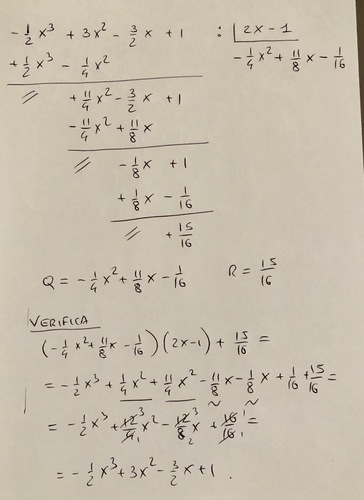 -1/2 x³ + 3x² - 3/2 x + 1 : 2x - 1
+1/2 x³ - 1/4 x² -1/4 x² + 11/8 x - 1/16
// +11/4 x² - 3/2 x + 1
-11/4 x² + 11/8 x
// -1/8 x + 1
+1/8 x - 1/16
// +15/16
Q = -1/4 x² + 11/8 x - 1/16 R = 15/16
VERIFICA
(-1/4 x² + 11/8 x - 1/16)(2x-1) + 15/16 =
= -1/2 x³ + 1/4 x² + 11/4 x² - 11/8 x - 1/8 x + 1/16 + 15/16 =
= -1/2 x³ + 12/4 3 1 x² - 12/8 3 2 x + 16/16 1 1 =
= -1/2 x³ + 3x² - 3/2 x + 1 .